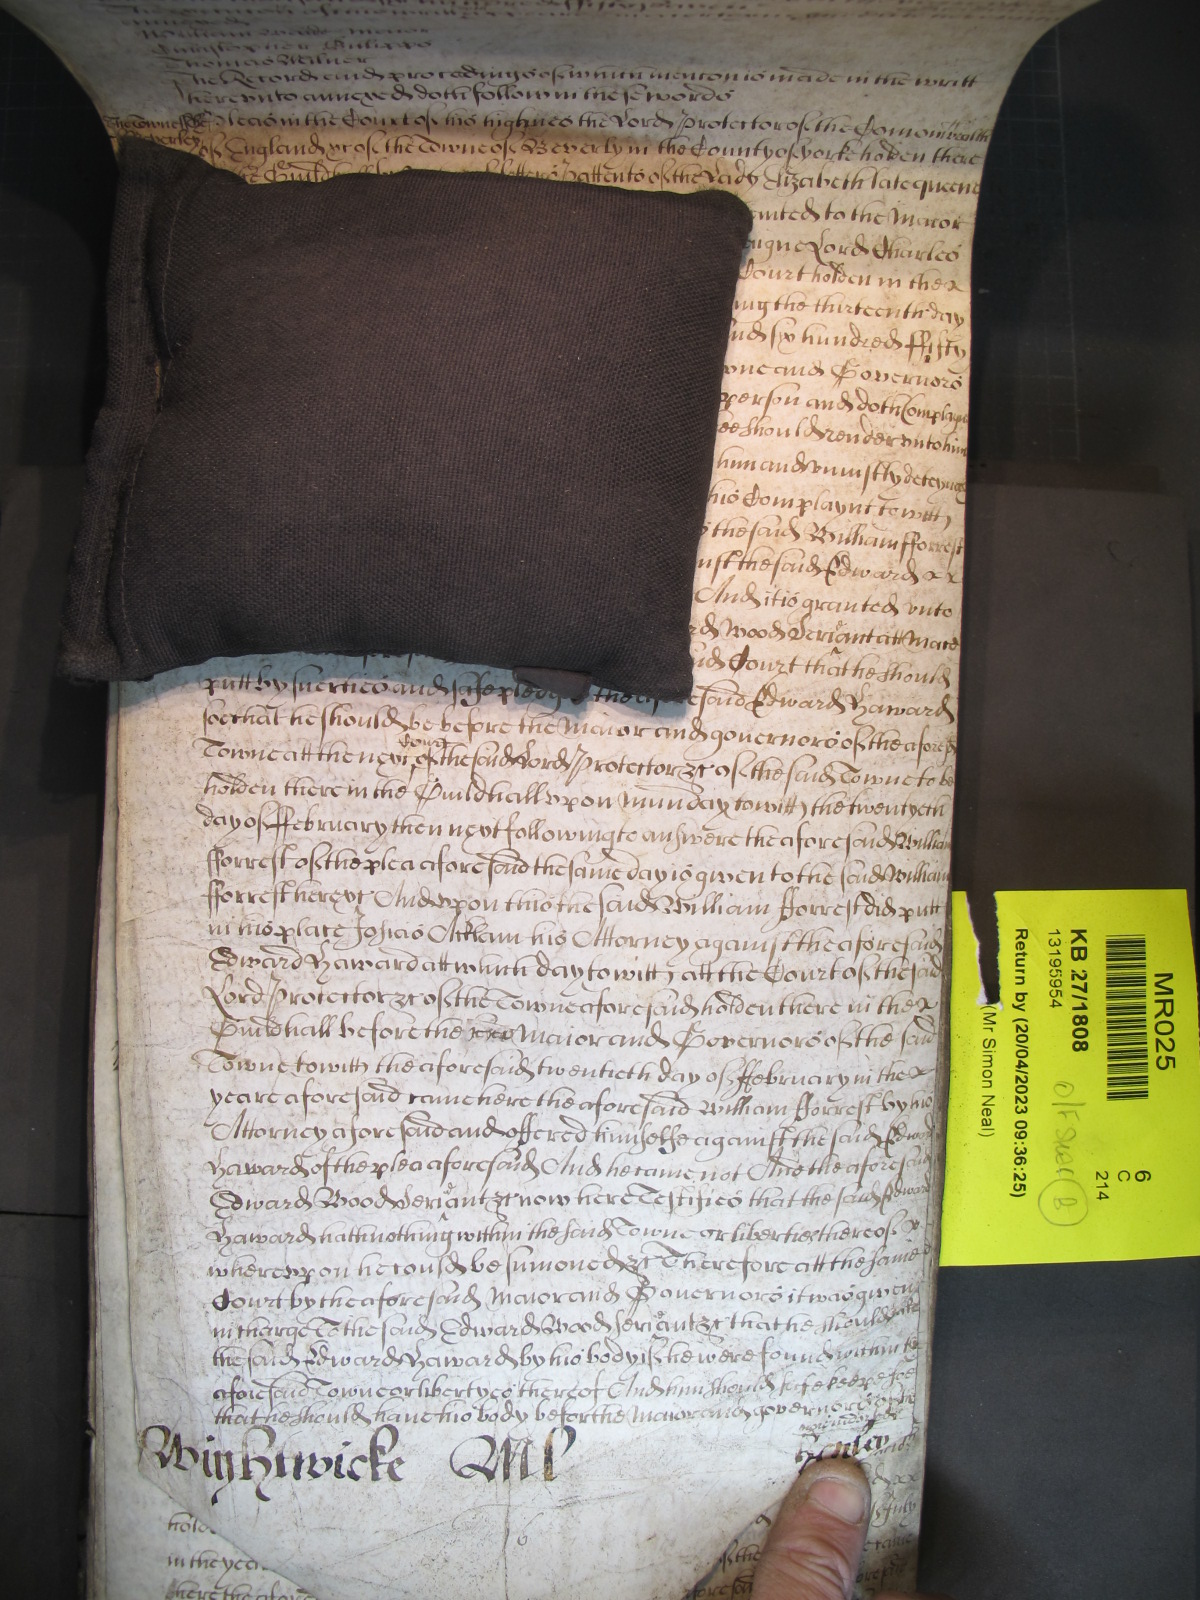 Christopher Philipps
Thomas Milner
The Record and proceedings of which mencon is made in the writt
hereunto annexed doth follow in these words
The Towne of Beverley
Pleas in the Court of his highnes the Lord Protector of the Comonwealth
of England &c of the Towne of Beverly in the County of yorke holden there
the Guildhall letters pattents of the Lady Elizabeth late queene
anted to the Maior
aigne Lord Charles
Court holden in the
ing the thirteenth day
and six hundred ffifty
wne and Governors
person and doth Complayne
hee should render unto him
him and uniustly deteyneth
his Complaynt towitt
the said William fforrest
inst the said Edward
And it is granted unto
rd Wood Seriant att Mace
aid Court that he should
putt by suerties and safe pledges the aforesaid Edward Haward
soe that he should be before the Maior and governors of the aforesd
Towne att the next Court of the said Lord Protector &c of the said Towne to be
holden there in the Guildhall upon munday towitt the twentyeth
day of ffebruary then next following to answere the aforesaid William
fforrest of the plea aforesaid the same day is given to the said William
fforrest here &c And upon this the said William fforrest did putt
in his place Josias Acklam his Attorney against the aforesaid
Edward Haward att which day towitt att the Court of the said
Lord Protector &c of the Towne aforesaid holden there in the
Guildhall before the Maior and Governors of the said
Towne towitt the aforesaid twentieth day of ffebruary in the
yeare aforesaid came here the aforesaid William fforrest by his
Attorney aforesaid and offered himselfe against the said Edward
Haward of the plea aforesaid And he came not And the aforesaid
Edward Wood Seriant &c now here Testifies that the said Edward
Haward hath nothing within the said Towne or liberties thereof
whereupon he could be sumoned &c Therefore att the same
Court by the aforesaid Maior and Governors it was given
in charge To the said Edward Wood Seriant &c that he should take
the said Edward Haward by his body if he were found within the
aforesaid Towne or libertyes thereof And him should safe keepe soe
that he should have his body before the Maior and governors
Wightwicke
holde
in the yeare
here the afore
July
of the
aforesaid
MR025
KB 27/1808
13195954
Return by (20/04/2023 09:36:25)
(Mr Simon Neal)
6
C
214
B